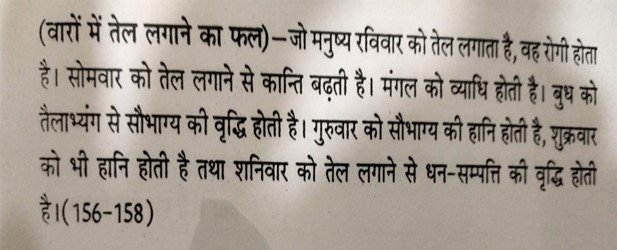 (वारों में तेल लगाने का फल)–जो मनुष्य रविवार को तेल लगाता है, वह रोगी होता
है। सोमवार को तेल लगाने से कान्ति बढ़ती है। मंगल को व्याधि होती है। बुध को
तैलाभ्यंग से सौभाग्य की वृद्धि होती है। गुरुवार को सौभाग्य की हानि होती है, शुक्रवार
को भी हानि होती है तथा शनिवार को तेल लगाने से धन-सम्पत्ति की वृद्धि होती
है।(156-158)